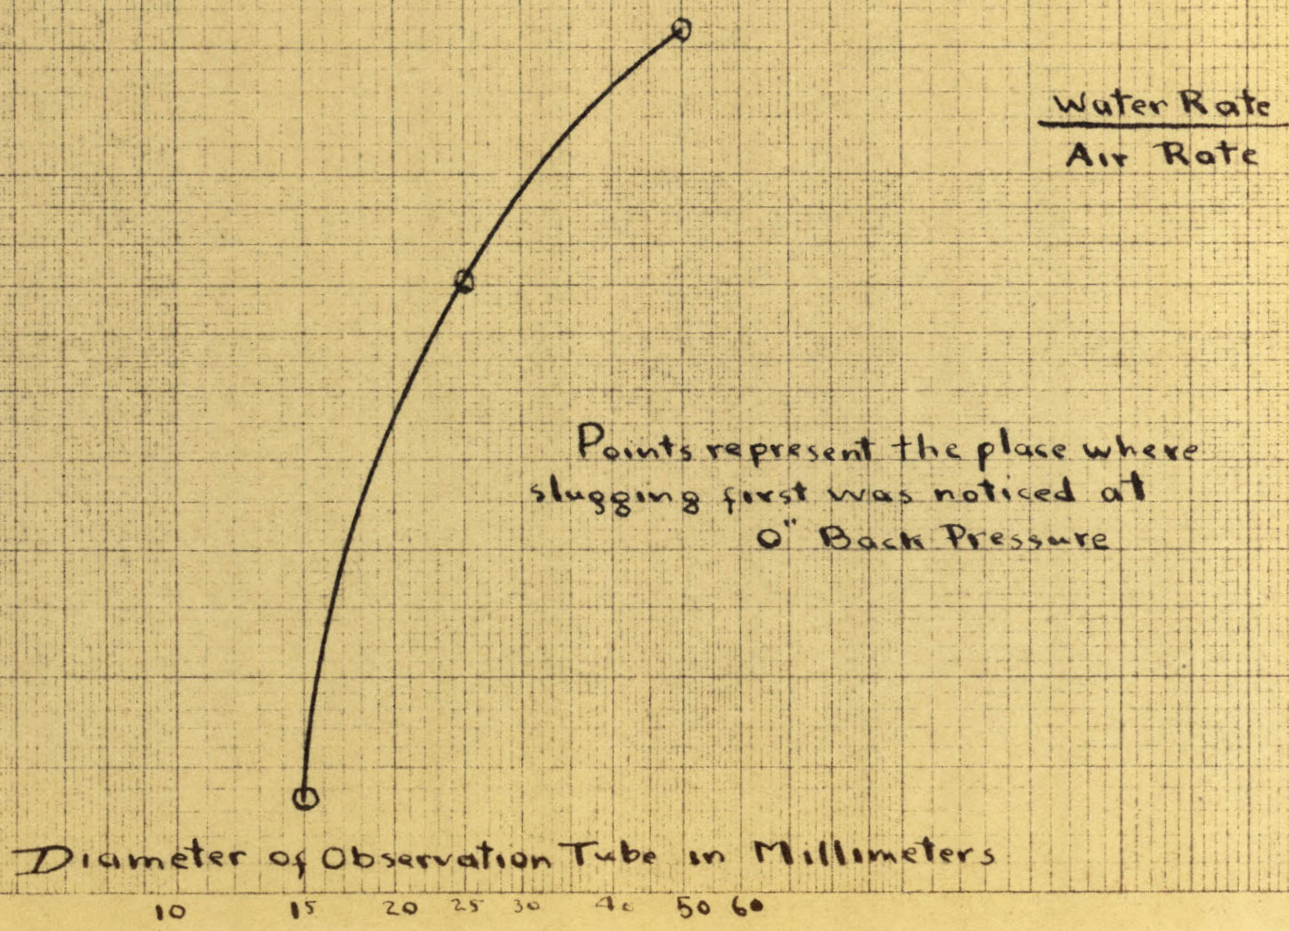 Water Rate
Air Rate
Points represent the place where
slugging first was noticed at
0" Back Pressure
Diameter of Observation Tube in Millimeters
10 15 20 25 30 40 50 60